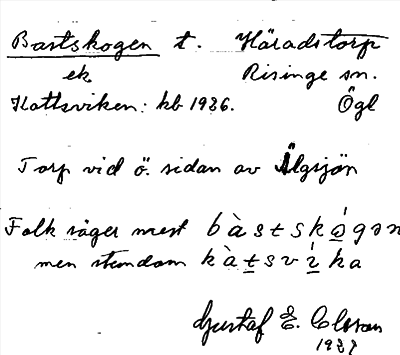 Bastskogen t. Häradstorp
ek Risinge sn.
Kattsviken: kb 1926. Ögl
Torp vid ö. sidan av Älgsjön
Folk säger mest bàstskó̱gən
men stundom kàṯsví̱ka
Gustaf E. Olsson